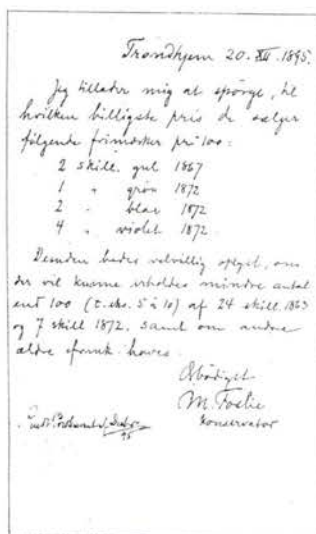 Trondhjem 20. XII. 1895.
Jeg tillader mig at spörge, til
hvilken billigste pris de sælger
følgende frimærker pr 100:
2 skill. gul 1867
1 " grön 1872
2 " blaa 1872
4 " violet 1872.
Desuden bedes velvillig oplyst, om
der vil kunne erholdes mindre antal
end 100 (t. eks. 5 à 10) af 24 skill 1863
og 7 skill 1872, samt om andre
ældre frimk. haves.
Ærbödigst
M. Foslie
Konservator
95